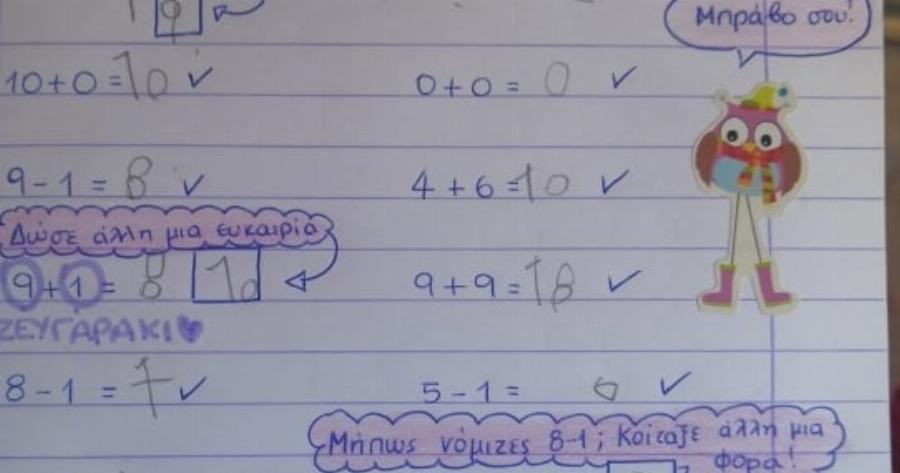 9 Μπράβο σου!
10+0=10 ✓ 0+0= 0 ✓
9-1= 8 ✓ 4+6=10 ✓
Δώσε άλλη μια ευκαιρία
9+1= 8 10 9+9=18 ✓
ΖΕΥΓΑΡΑΚΙ♥
8-1 = 7 ✓ 5-1= ✓
Μήπως νόμιζες 8-1; Κοίταξε άλλη μια
φορά!